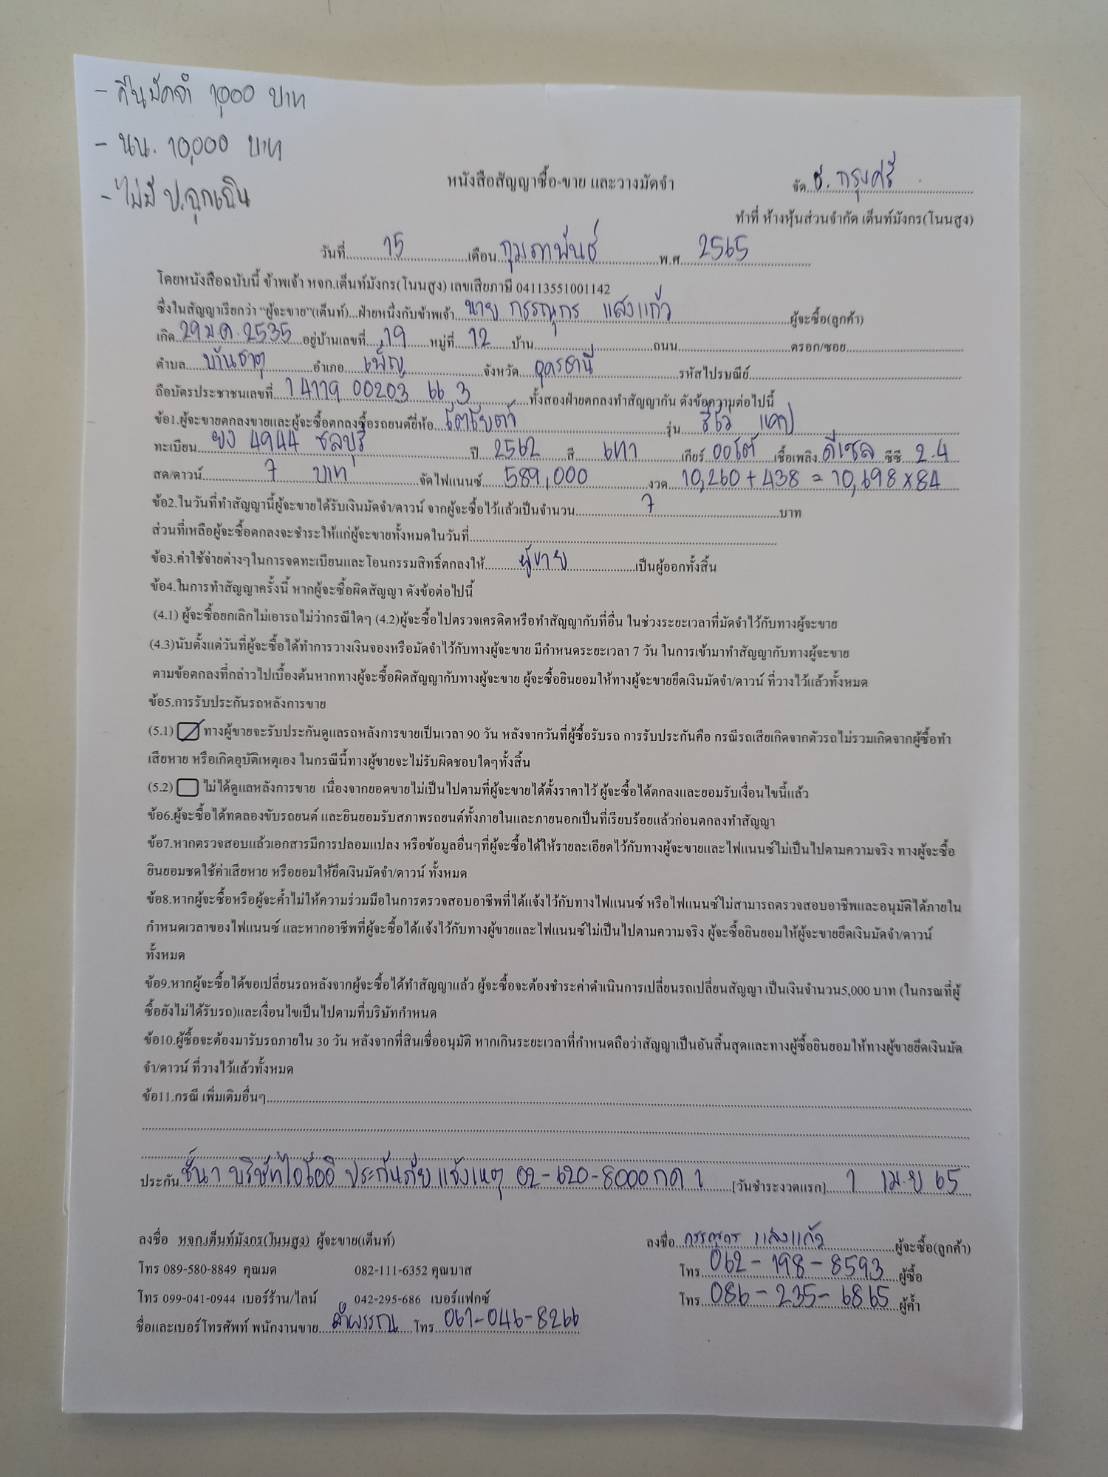 - คืนมัดจำ 1,000 บาท
- นน. 10,000 บาท
- ไม่มี ป.ฉุกเฉิน
หนังสือสัญญาซื้อ-ขาย และวางมัดจำ
จัด ธ. กรุงศรี
ทำที่ ห้างหุ้นส่วนจำกัด เต็นท์มังกร(โนนสูง)
วันที่ 15 เดือน กุมภาพันธ์ พ.ศ 2565
โดยหนังสือฉบับนี้ ข้าพเจ้า หจก.เต็นท์มังกร(โนนสูง) เลขเสียภาษี 04113551001142
ซึ่งในสัญญาเรียกว่า "ผู้จะขาย"(เต็นท์)...ฝ่ายหนึ่งกับข้าพเจ้า นาย กรรณุกร แสงแก้ว ผู้จะซื้อ(ลูกค้า)
เกิด 29 ม.ค. 2535 อยู่บ้านเลขที่ 19 หมู่ที่ 12 บ้าน ถนน ตรอก/ซอย
ตำบล บ้านธาตุ อำเภอ เพ็ญ จังหวัด อุดรธานี รหัสไปรษณีย์
ถือบัตรประชาชนเลขที่ 1 4119 00203 66 3 ทั้งสองฝ่ายตกลงทำสัญญากัน ดังข้อความต่อไปนี้
ข้อ1.ผู้จะขายตกลงขายและผู้จะซื้อตกลงซื้อรถยนต์ยี่ห้อ โตโยต้า รุ่น รีโว่ แคป
ทะเบียน 4944 ชลบุรี ปี 2562 สี เทา เกียร์ ออโต้ เชื้อเพลิง ดีเซล ซีซี 2.4
สด/ดาวน์ 7 บาท จัดไฟแนนซ์ 589,000 งวด 10,260 + 438 = 10,698 x 84
ข้อ2.ในวันที่ทำสัญญานี้ผู้จะขายได้รับเงินมัดจำ/ดาวน์ จากผู้จะซื้อไว้แล้วเป็นจำนวน 7 บาท
ส่วนที่เหลือผู้จะซื้อตกลงจะชำระให้แก่ผู้จะขายทั้งหมดในวันที่
ข้อ3.ค่าใช้จ่ายต่างๆในการจดทะเบียนและโอนกรรมสิทธิ์ตกลงให้ ผู้ขาย เป็นผู้ออกทั้งสิ้น
ข้อ4.ในการทำสัญญาครั้งนี้ หากผู้จะซื้อผิดสัญญา ดังข้อต่อไปนี้
(4.1) ผู้จะซื้อยกเลิกไม่เอารถไม่ว่ากรณีใดๆ (4.2)ผู้จะซื้อไปตรวจเครดิตหรือทำสัญญากับที่อื่น ในช่วงระยะเวลาที่มัดจำไว้กับทางผู้จะขาย
(4.3)นับตั้งแต่วันที่ผู้จะซื้อได้ทำการวางเงินจองหรือมัดจำไว้กับทางผู้จะขาย มีกำหนดระยะเวลา 7 วัน ในการเข้ามาทำสัญญากับทางผู้จะขาย
ตามข้อตกลงที่กล่าวไปเบื้องต้นหากทางผู้จะซื้อผิดสัญญากับทางผู้จะขาย ผู้จะซื้อยินยอมให้ทางผู้จะขายยึดเงินมัดจำ/ดาวน์ ที่วางไว้แล้วทั้งหมด
ข้อ5.การรับประกันรถหลังการขาย
(5.1) ทางผู้ขายจะรับประกันดูแลรถหลังการขายเป็นเวลา 90 วัน หลังจากวันที่ผู้ซื้อรับรถ การรับประกันคือ กรณีรถเสียเกิดจากตัวรถไม่รวมเกิดจากผู้ซื้อทำ
เสียหาย หรือเกิดอุบัติเหตุเอง ในกรณีนี้ทางผู้ขายจะไม่รับผิดชอบใดๆทั้งสิ้น
(5.2) ไม่ได้ดูแลหลังการขาย เนื่องจากยอดขายไม่เป็นไปตามที่ผู้จะขายได้ตั้งราคาไว้ ผู้จะซื้อได้ตกลงและยอมรับเงื่อนไขนี้แล้ว
ข้อ6.ผู้จะซื้อได้ทดลองขับรถยนต์ และยินยอมรับสภาพรถยนต์ทั้งภายในและภายนอกเป็นที่เรียบร้อยแล้วก่อนตกลงทำสัญญา
ข้อ7.หากตรวจสอบแล้วเอกสารมีการปลอมแปลง หรือข้อมูลอื่นๆที่ผู้จะซื้อได้ให้รายละเอียดไว้กับทางผู้จะขายและไฟแนนซ์ไม่เป็นไปตามความจริง ทางผู้จะซื้อ
ยินยอมชดใช้ค่าเสียหาย หรือยอมให้ยึดเงินมัดจำ/ดาวน์ ทั้งหมด
ข้อ8.หากผู้จะซื้อหรือผู้จะค้ำไม่ให้ความร่วมมือในการตรวจสอบอาชีพที่ได้แจ้งไว้กับทางไฟแนนซ์ หรือไฟแนนซ์ไม่สามารถตรวจสอบอาชีพและอนุมัติได้ภายใน
กำหนดเวลาของไฟแนนซ์ และหากอาชีพที่ผู้จะซื้อได้แจ้งไว้กับทางผู้ขายและไฟแนนซ์ไม่เป็นไปตามความจริง ผู้จะซื้อยินยอมให้ผู้จะขายยึดเงินมัดจำ/ดาวน์
ทั้งหมด
ข้อ9.หากผู้จะซื้อได้ขอเปลี่ยนรถหลังจากผู้จะซื้อได้ทำสัญญาแล้ว ผู้จะซื้อจะต้องชำระค่าดำเนินการเปลี่ยนรถเปลี่ยนสัญญา เป็นเงินจำนวน5,000 บาท (ในกรณที่ผู้
ซื้อยังไม่ได้รับรถ)และเงื่อนไขเป็นไปตามที่บริษัทกำหนด
ข้อ10.ผู้ซื้อจะต้องมารับรถภายใน 30 วัน หลังจากที่สินเชื่ออนุมัติ หากเกินระยะเวลาที่กำหนดถือว่าสัญญาเป็นอันสิ้นสุดและทางผู้ซื้อยินยอมให้ทางผู้ขายยึดเงินมัด
จำ/ดาวน์ ที่วางไว้แล้วทั้งหมด
ข้อ11.กรณี เพิ่มเติมอื่นๆ
ประกัน ชั้น 1 บริษัทไอโออิ ประกันภัย แจ้งเหตุ 02-620-8000 กด 1 [วันชำระงวดแรก] 1 เม.ย 65
ลงชื่อ หจก.เต็นท์มังกร(โนนสูง) ผู้จะขาย(เต็นท์)
ลงชื่อ กรรณุกร แสงแก้ว ผู้จะซื้อ(ลูกค้า)
โทร 089-580-8849 คุณมด 082-111-6352 คุณบาส
โทร 062-198-8593 ผู้ซื้อ
โทร 099-041-0944 เบอร์ร้าน/ไลน์ 042-295-686 เบอร์แฟกซ์
โทร 086-235-6865 ผู้ค้ำ
ชื่อและเบอร์โทรศัพท์ พนักงานขาย ลำพรรณ โทร 061-046-8266